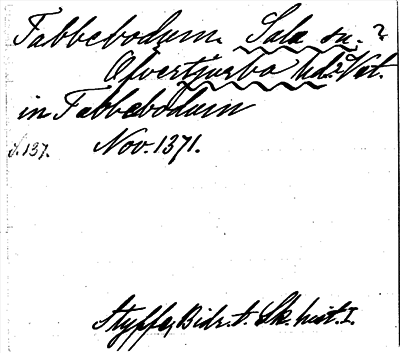 Tabbebodum. Sala sn.?
Øfvertjurbo hd.? Vet.
in Tabbebodum
S. 137. Nov. 1371.
Styffe, Bidr. t. Sk. hist. I.